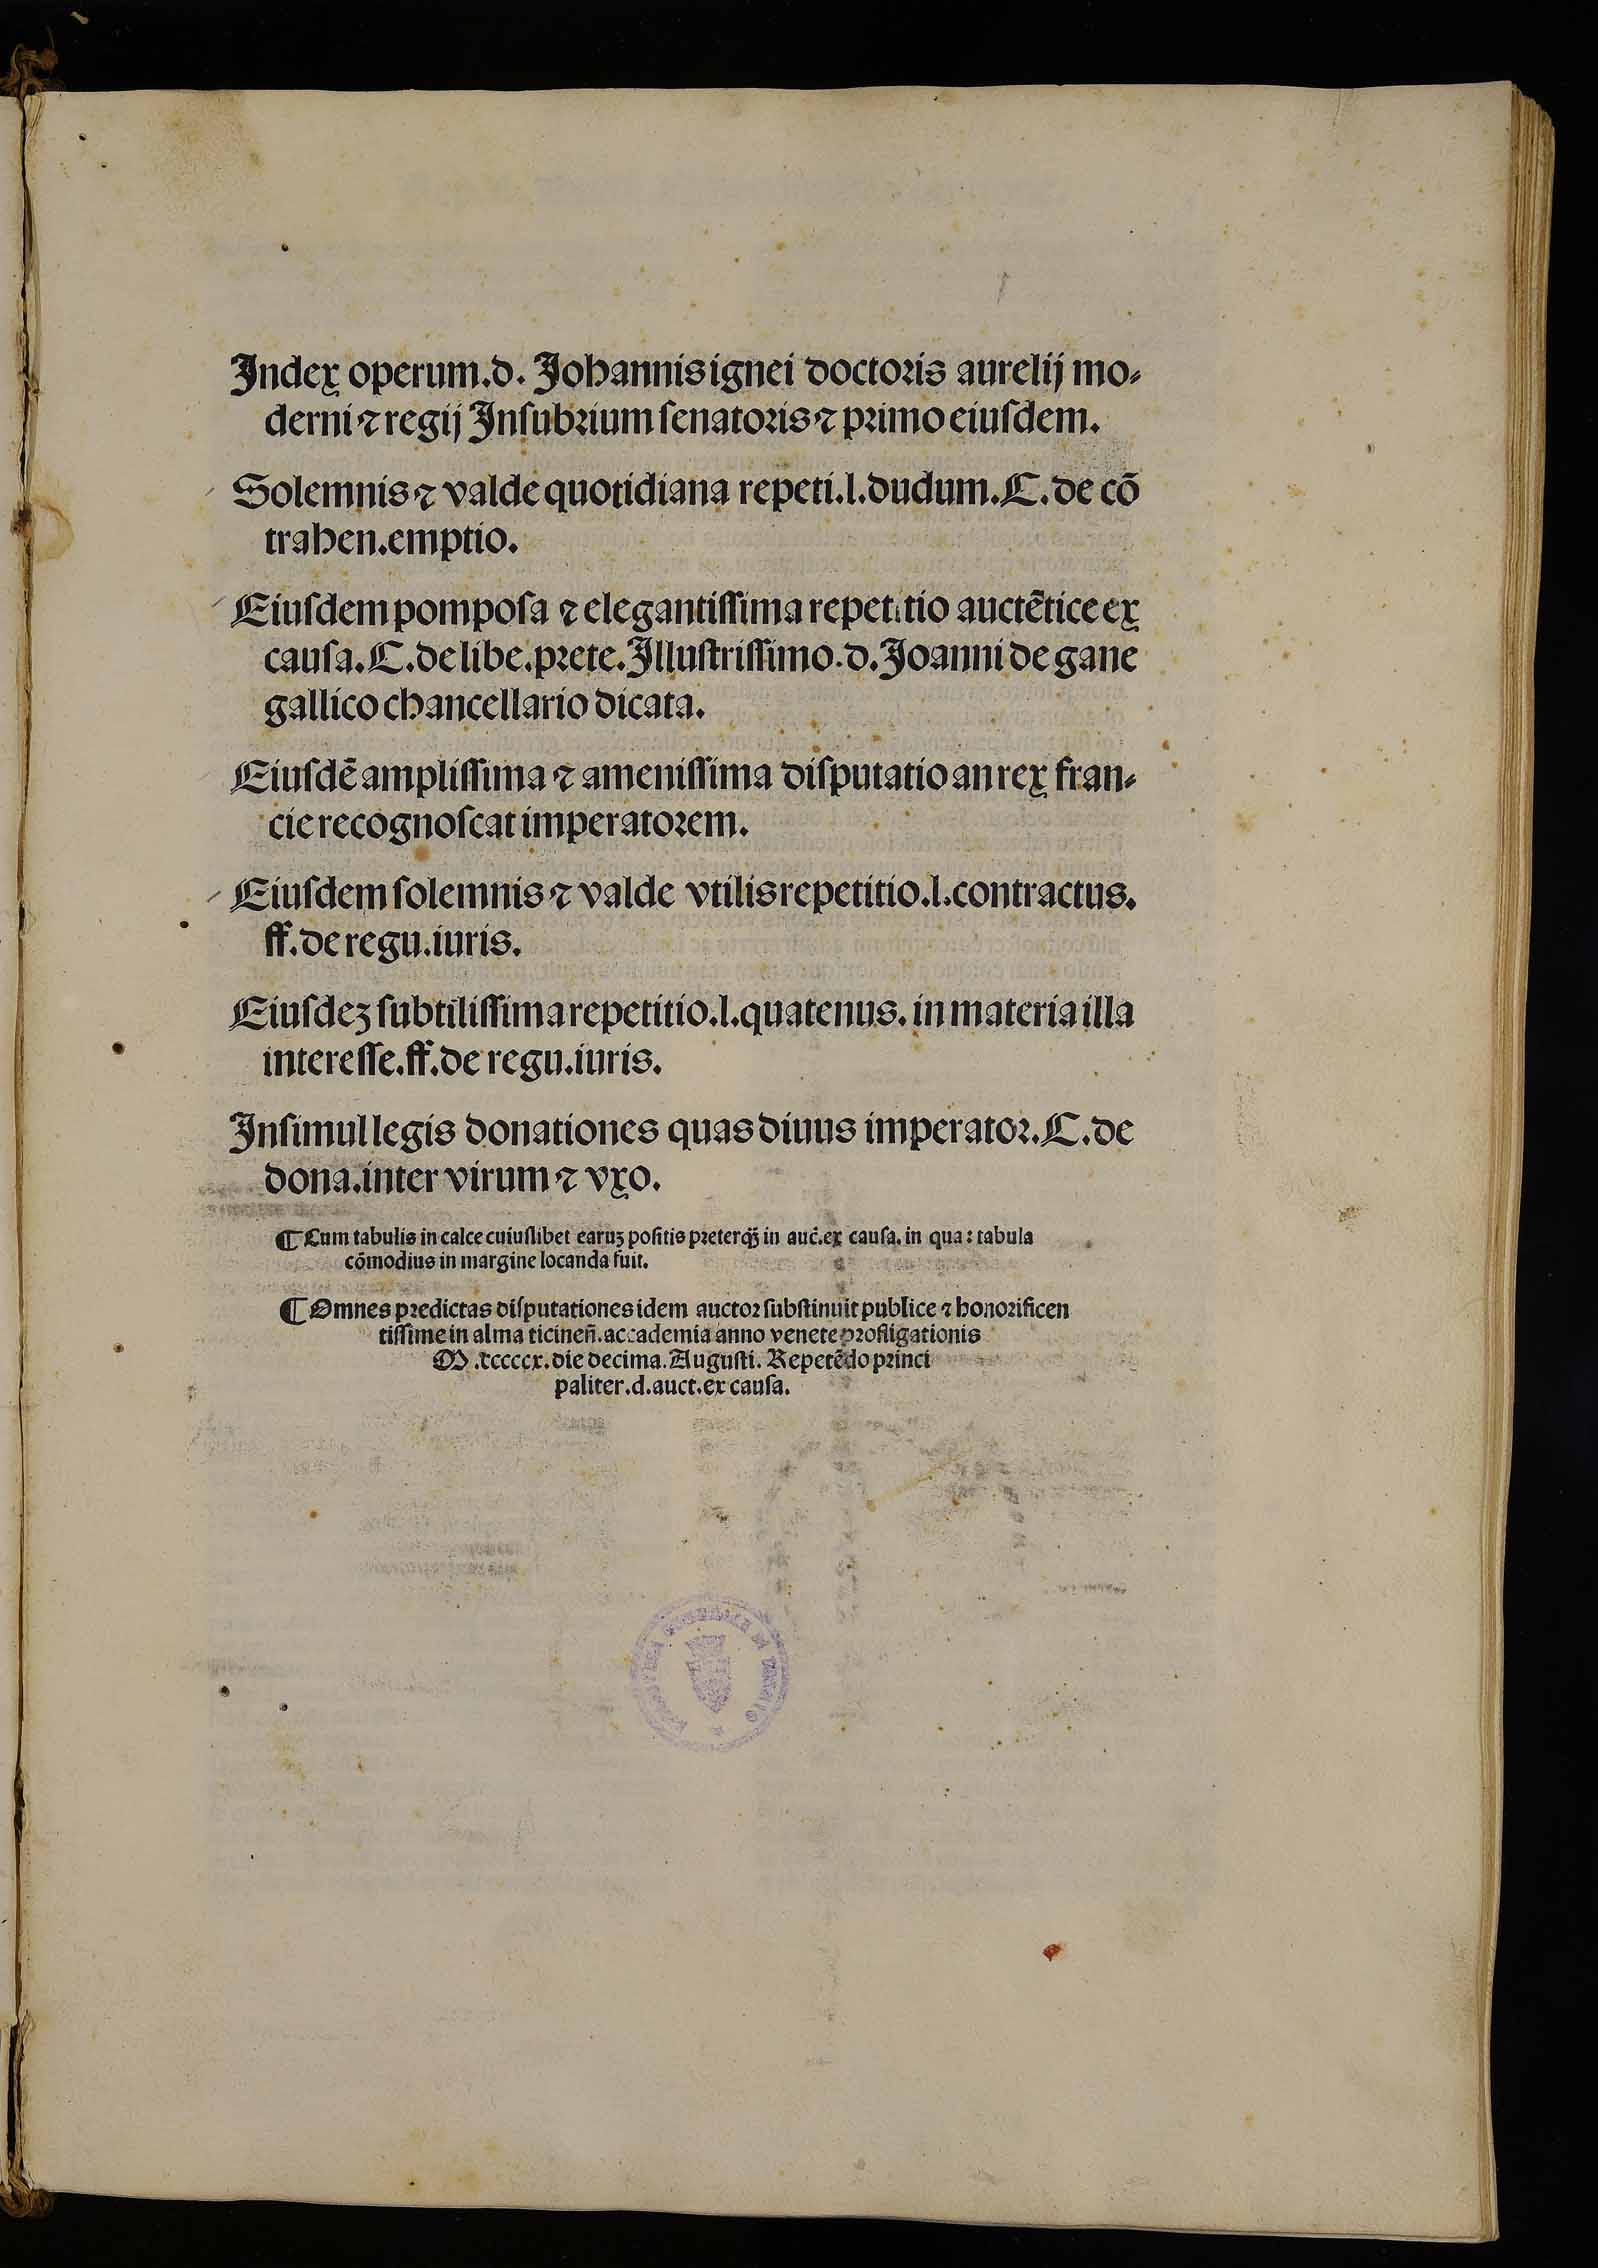 Index operum.d. Johannis ignei doctoris aurelij mo⸗
derni ⁊ regij Insubrium senatoris ⁊ primo eiusdem.
Solemnis ⁊ valde quotidiana repeti.l.dudum.C.de cō
trahen.emptio.
Eiusdem pomposa ⁊ elegantissima repetitio auctētice ex
causa.C.de libe.prete.Illustrissimo.d.Joanni de gane
gallico chancellario dicata.
Eiusdē amplissima ⁊ amenissima disputatio an rex fran⸗
cie recognoscat imperatorem.
Eiusdem solemnis ⁊ valde vtilis repetitio.l.contractus.
ff.de regu.iuris.
Eiusdeꝫ subtilissima repetitio.l.quatenus. in materia illa
interesse.ff.de regu.iuris.
Insimul legis donationes quas diuus imperator.C.de
dona.inter virum ⁊ vxo.
¶ Cum tabulis in calce cuiuslibet earuꝫ positis preterqꝫ̄ in auc̄.ex causa. in qua: tabula
cōmodius in margine locanda fuit.
¶ Omnes predictas disputationes idem auctor substinuit publice ⁊ honorificen
tissime in alma ticineñ.accademia anno venete profligationis
M.ccccc​x. die decima. Augusti. Repetēdo princi
paliter.d.auct.ex causa.